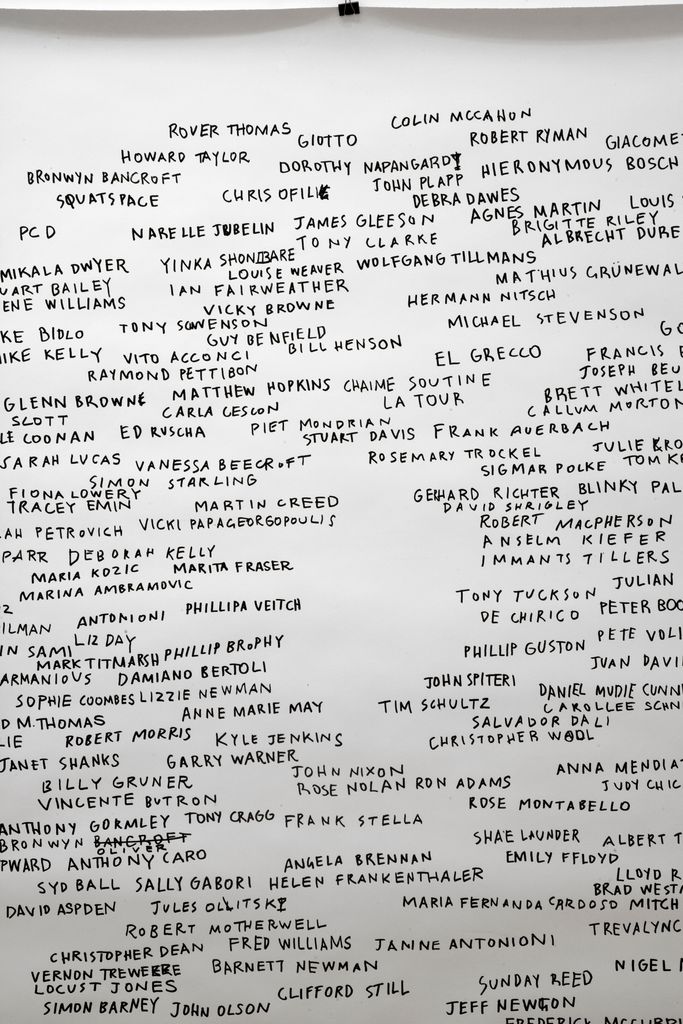 COLIN MCCAHON
ROVER THOMAS
GIOTTO
ROBERT RYMAN
GIACOME
HOWARD TAYLOR
DOROTHY NAPANGARDI
HIERONYMOUS BOSCH
BRONWYN BANCROFT
CHRIS OFILI
JOHN PLAPP
SQUATSPACE
DEBRA DAWES
PCD
NARELLE JUBELIN
JAMES GLEESON
AGNES MARTIN
LOUIS
BRIGITTE RILEY
TONY CLARKE
ALBRECHT DURE
MIKALA DWYER
YINKA SHONIBARE
LOUISE WEAVER
WOLFGANG TILLMANS
UART BAILEY
IAN FAIRWEATHER
MATHIUS GRÜNEWAL
ENE WILLIAMS
VICKY BROWNE
HERMANN NITSCH
KE BIDLO
TONY SWENSON
GUY BENFIELD
MICHAEL STEVENSON
GO
IKE KELLY
VITO ACCONCI
BILL HENSON
EL GRECCO
FRANCIS
RAYMOND PETTIBON
JOSEPH BEU
GLENN BROWNE
MATTHEW HOPKINS
CHAIME SOUTINE
BRETT WHITEL
SCOTT
CARLA CESCON
LA TOUR
CALLUM MORTON
LE COONAN
ED RUSCHA
PIET MONDRIAN
STUART DAVIS
FRANK AUERBACH
SARAH LUCAS
VANESSA BEECROFT
ROSEMARY TROCKEL
JULIE KRO
SIMON STARLING
SIGMAR POLKE
TOM KE
FIONA LOWERY
TRACEY EMIN
MARTIN CREED
GERHARD RICHTER
BLINKY PAL
DAVID SHRIGLEY
AH PETROVICH
VICKI PAPAGEORGOPOULIS
ROBERT MACPHERSON
ANSELM KIEFER
PARR
DEBORAH KELLY
IMMANTS TILLERS
MARIA KOZIC
MARITA FRASER
MARINA AMBRAMOVIC
TONY TUCKSON
JULIAN
ILMAN
ANTONIONI
PHILLIPA VEITCH
DE CHIRICO
PETER BOO
N SAMI
LIZ DAY
PHILLIP GUSTON
PETE VOLI
MARK TITMARSH
PHILLIP BROPHY
JUAN DAVI
ARMANIOUS
DAMIANO BERTOLI
JOHN SPITERI
SOPHIE COOMBES
LIZZIE NEWMAN
DANIEL MUDIE CUNN
D M. THOMAS
ANNE MARIE MAY
TIM SCHULTZ
CAROLLEE SCHN
SALVADOR DALI
LIE
ROBERT MORRIS
KYLE JENKINS
CHRISTOPHER WOOL
JANET SHANKS
GARRY WARNER
JOHN NIXON
ANNA MENDIA
BILLY GRUNER
ROSE NOLAN
RON ADAMS
JUDY CHIC
VINCENTE BUTRON
ROSE MONTABELLO
ANTHONY GORMLEY
TONY CRAGG
FRANK STELLA
BRONWYN BANCROFT
OLIVER
SHAE LAUNDER
ALBERT T
PWARD
ANTHONY CARO
ANGELA BRENNAN
EMILY FFLOYD
SYD BALL
SALLY GABORI
HELEN FRANKENTHALER
LLOYD R
BRAD WESTM
DAVID ASPDEN
JULES OLLITSKI
MARIA FERNANDA CARDOSO
MITCH
ROBERT MOTHERWELL
TREVALYNC
CHRISTOPHER DEAN
FRED WILLIAMS
JANINE ANTONIONI
VERNON TREWEEKE
BARNETT NEWMAN
NIGEL
LOCUST JONES
CLIFFORD STILL
SUNDAY REED
SIMON BARNEY
JOHN OLSON
JEFF NEWTON
FREDERICK